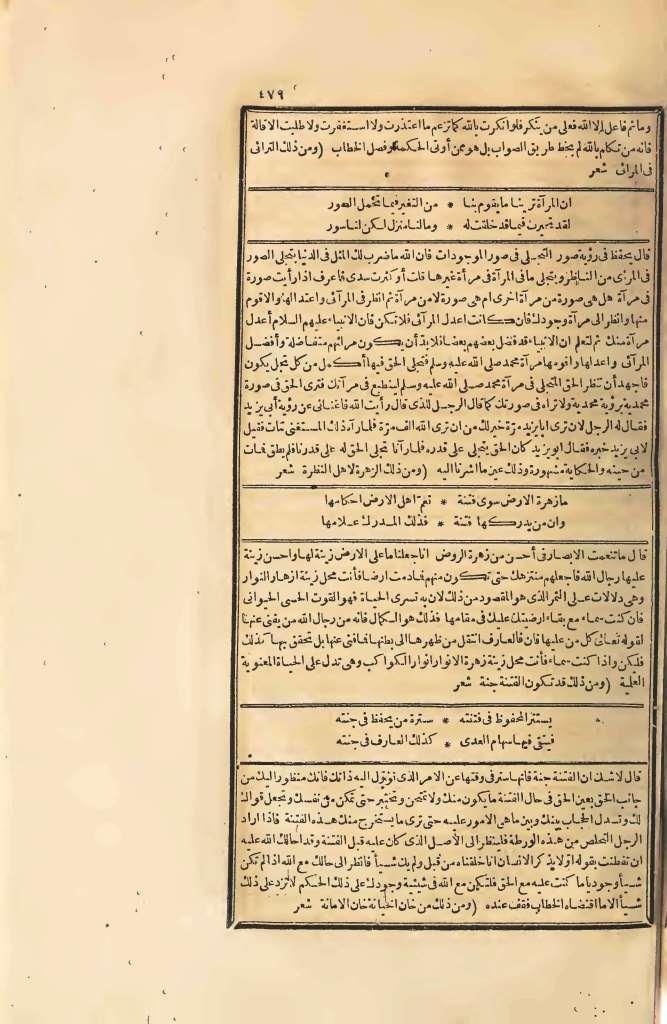 ٤٧٩
وما ثم فاعل الا الله فعلى من يتكرر فلو انكرت بالله كما تزعم ما اعتذرت ولا استغفرت ولا طلبت الاقالة
فانه من تكلم بالله لم يخط طريق الصواب بل هو ممن أوتى الحكمة وفصل الخطاب (ومن ذلك الترائى
فى المرائى شعر
ان المرآة ترينا ما يقوم بنا * من التغير فيما تحمل الصور
لقد تحيرت فيما قد خلقت له * وما لنا منزل لكن لنا سور
قال يحفظ فى رؤية صور التجلى فى صور الموجودات فان الله ما ضرب لك المثل فى الدنيا بتجلى الصور
فى المرئى من الناظر و يتجلى ما فى المرآة فى مرآة غيرها قلت أو كثرت سدى فاعرف اذا رأيت صورة
فى مرآة هل هى صورة من مرآة اخرى ام هى صورة لا من مرآة ثم انظر فى المرآئى واعتد الها والاقوم
منها وانظر الى مرآة وجودك فان كانت اعدل المرآئى فلا تكن فان الانبياء عليهم السلام أعدل
مرآة منك ثم لتعلم ان الانبياء قد فضل بعضهم بعضا فلا بد أن يكون مرائهم متفاضلة وأفضل
المرآئى واعدلها واقومها مرآة محمد صلى الله عليه وسلم فتجلى الحق فيها أكمل من كل تجل يكون
فاجهد أن تنظر الحق المتجلى فى مرآة محمد صلى الله عليه وسلم لينطبع فى مرآتك فترى الحق فى صورة
محمدية برؤية محمدية ولا تراه فى صورتك كما قال الرجل للذى قال رأيت الله فاغنانى عن رؤية أبى يزيد
فقال له الرجل لان ترى ابا يزيد مرة خير لك من ان ترى الله الف مرة فلما رآه ذلك المستغنى مات فقيل
لابى يزيد خبره فقال ابو يزيد كان الحق يتجلى على قدره فلما رآنا تجلى الحق له على قدرنا فلم يطق فمات
من حينه والحكاية مشهورة وذلك عين ما اشرنا اليه (ومن ذلك الزهرة لاهل النظرة شعر
ما زهرة الارض سوى فتنة * تعم اهل الارض احكامها
وان من يدركها فتنة * فذلك المدرك علامها
قال ما تنعمت الابصار فى أحسن من زهرة الروض انا جعلنا ما على الارض زينة لها واحسن زينة
عليها رجال الله فاجعلهم منتزهك حتى تكون منهم فما دمت ارضا فأنت محل زينة ازهار النوار
وهى دلالات على الثمر الذى هو المقصود من ذلك لان به تسرى الحياة فهو القوت الحسى الحيوانى
فان كنت سماء مع بقاء ارضيتك عليك فى مقامها فذلك هو الكمال فانه من رجال الله من يفنى عنها
لقوله تعالى كل من عليها فان فالعارف انتقل من ظهرها الى بطنها فما فنى عنها بل تحقق بها كذلك
فليكن واذا كنت سماء فأنت محل زينة زهرة الانوار انوار الكواكب وهى تدل على الحياة المعنوية
العلمية (ومن ذلك قد تكون الفتنة جنة شعر
يستتر المحفوظ فى فتنته * سترة من يحفظ فى جنته
فيتقى فيها سهام العدى * كذلك العارف فى جنته
قال لا شك ان الفتنة جنة فانها ستر فى وقتها عن الامر الذى تؤول اليه ذاتك فانك منظور اليك من
جانب الحق بعين الحق فى حال الفتنة ما يكون منك ولا تمتحن وتختبر حتى تمكن من نفسك وتجعل قواك
لك وتسدل الحجاب بينك وبين ما هى الامور عليه حتى ترى ما يستخرج منك هذه الفتنة فاذا اراد
الرجل التخلص من هذه الورطة فلينظر الى الأصل الذى كان عليه قبل الفتنة وقد احالك الله عليه
ان تفطنت بقوله أولا يذكر الانسان انا خلقناه من قبل ولم يك شيأ فانظر الى حالك مع الله اذ لم تكن
شيأ وجوديا ما كنت عليه مع الحق فلتكن مع الله فى شيئية وجودك على ذلك الحكم لا تزد على ذلك
شيأ الا ما اقتضاه الخطاب فقف عنده (ومن ذلك من خان الخيانة خان الامانة شعر